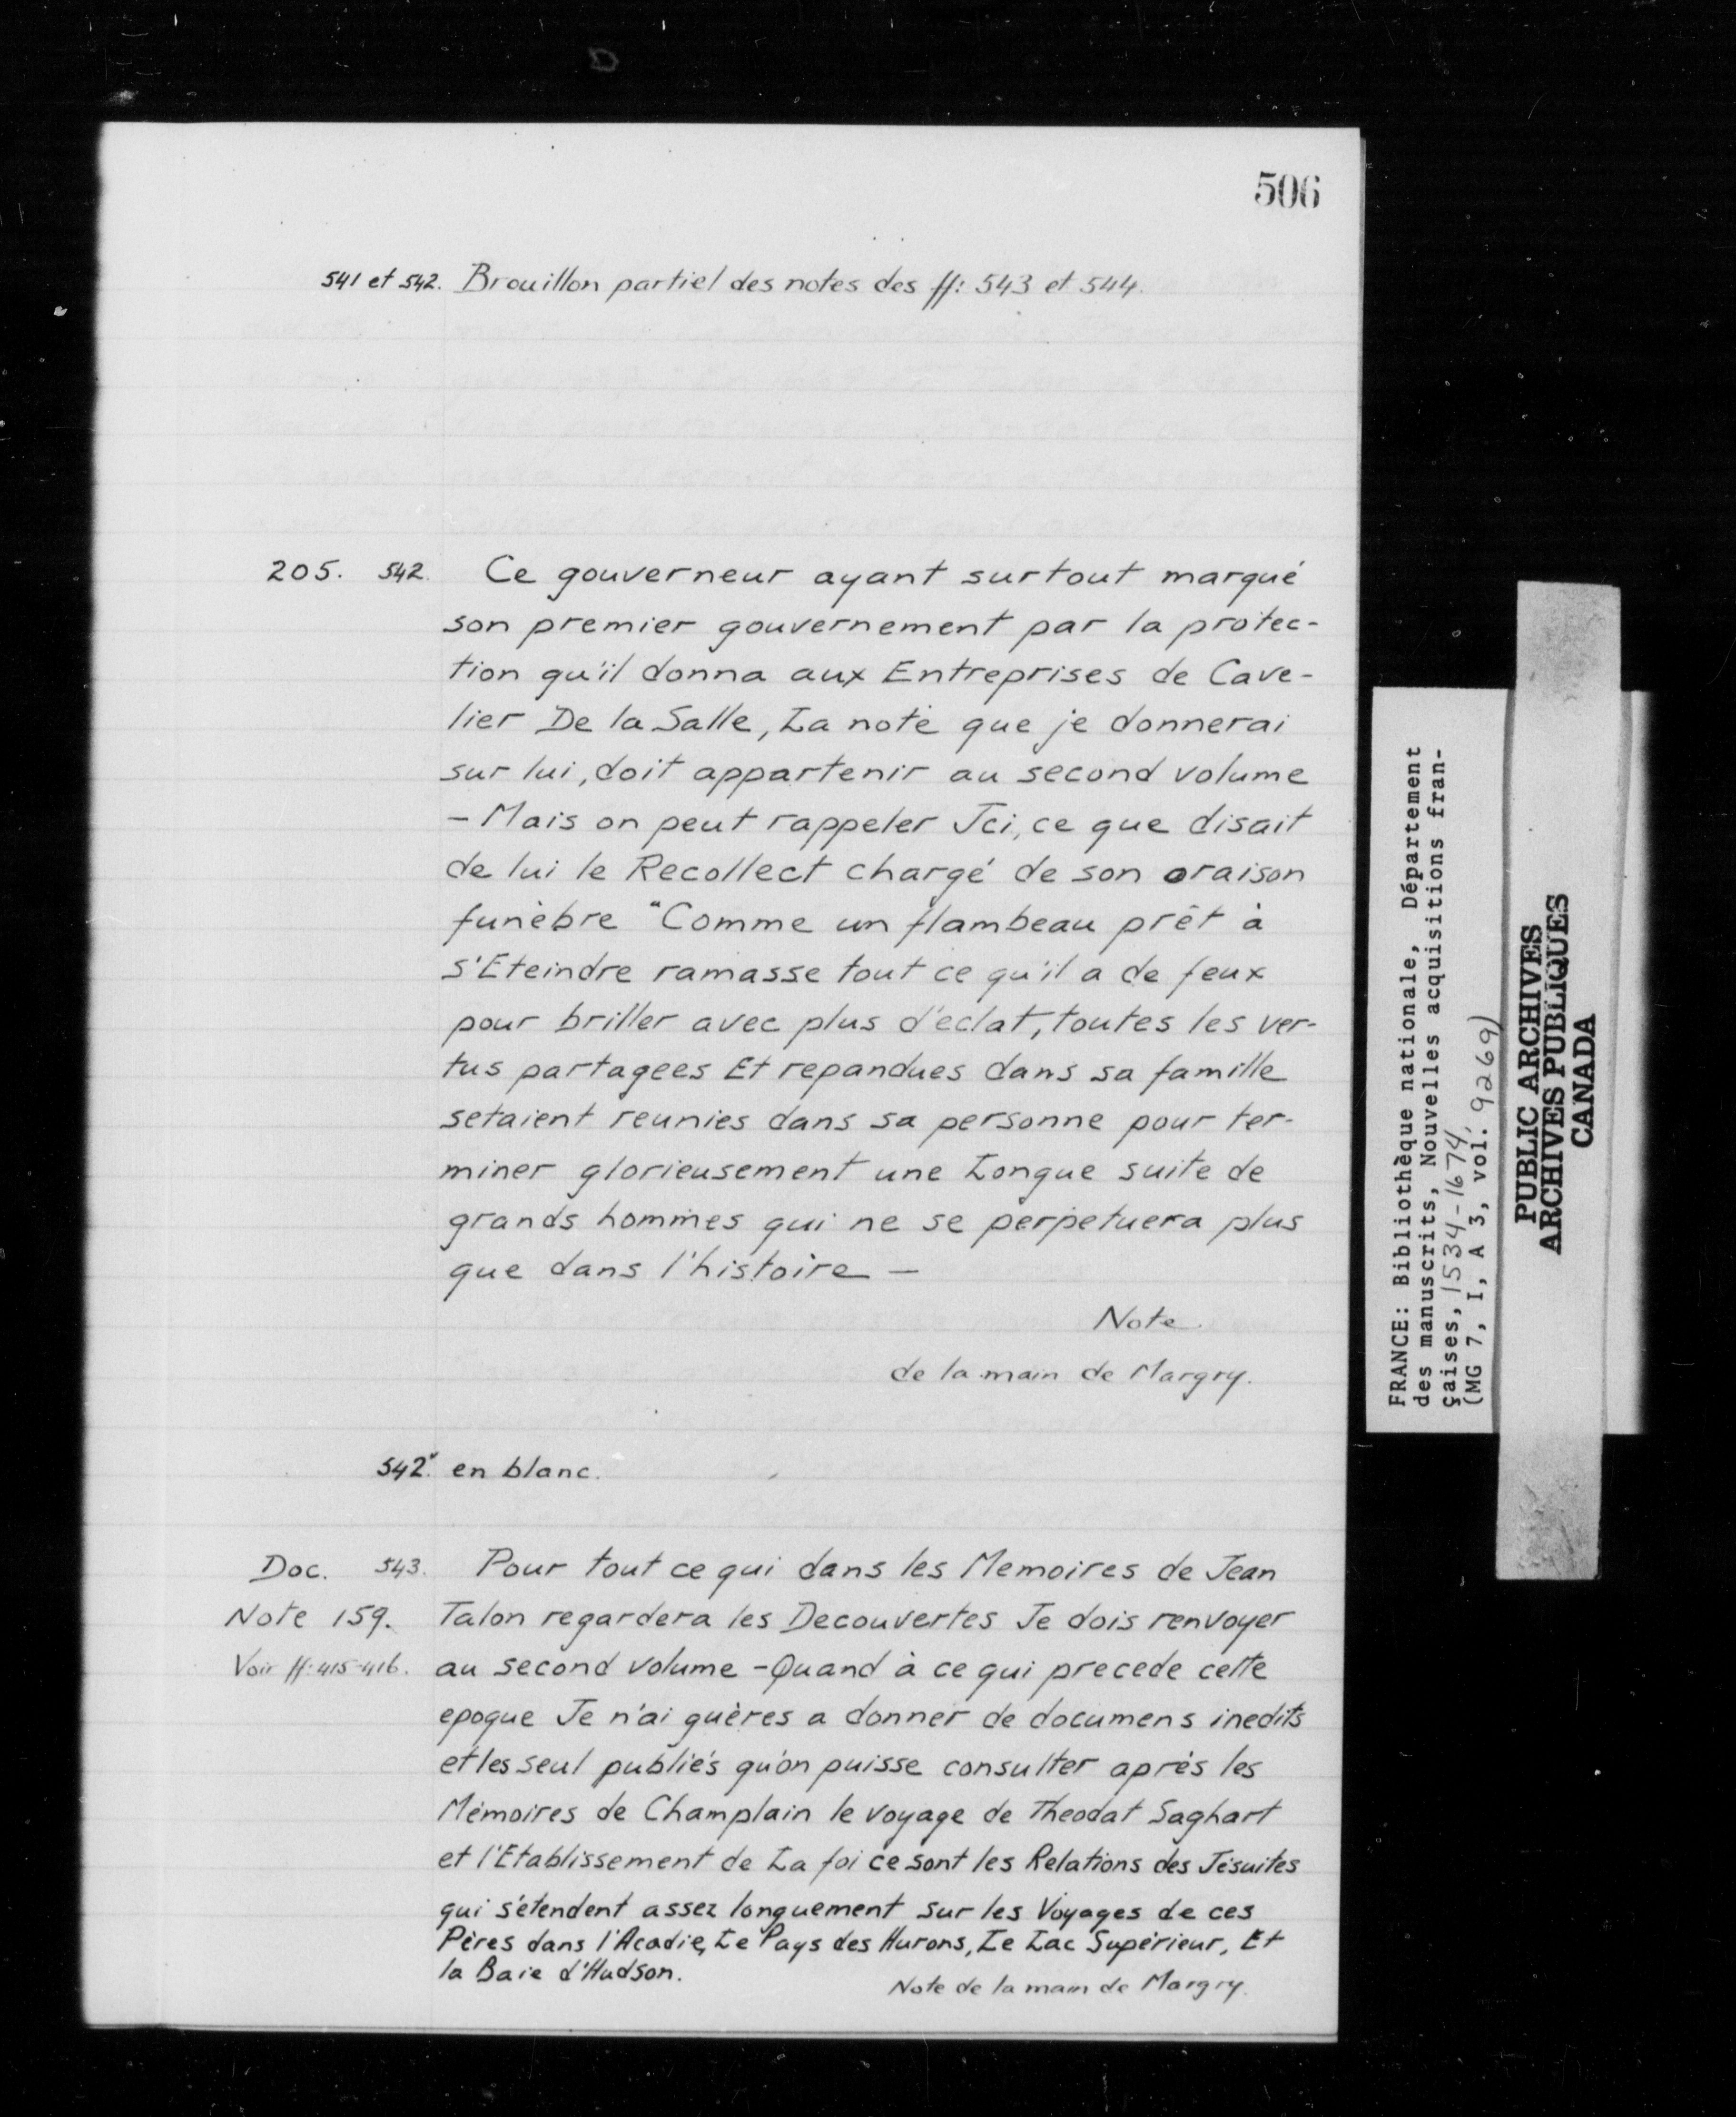 506
541 et 542. Brouillon partiel des notes des ff: 543 et 544.
205. 542. Ce gouverneur ayant surtout marqué
son premier gouvernement par la protec-
tion qu'il donna aux Entreprises de Cave-
lier De la Salle, La note que je donnerai
sur lui, doit appartenir au second volume
- Mais on peut rappeler Jci, ce que disait
de lui le Recollect chargé de son oraison
funèbre "Comme un flambeau prêt à
s'Eteindre ramasse tout ce qu'il a de feux
pour briller avec plus d'éclat, toutes les ver-
tus partagees Et repandues dans sa famille
setaient reunies dans sa personne pour ter-
miner glorieusement une Longue suite de
grands hommes qui ne se perpetuera plus
que dans l'histoire —
Note.
de la main de Margry.
542v. en blanc.
Doc. 543. Pour tout ce qui dans les Memoires de Jean
Note 159. Talon regardera les Decouvertes Je dois renvoyer
Voir ff: 415-416. au second volume - Quand à ce qui precede cette
epoque Je n'ai guères a donner de documens inedits
et les seul publiés qu'on puisse consulter après les
Mémoires de Champlain le voyage de Theodat Saghart
et l'Etablissement de La foi ce sont les Relations des Jésuites
qui s'étendent assez longuement sur les Voyages de ces
Pères dans l'Acadie, Le Pays des Hurons, Le Lac Supérieur, Et
la Baie d'Hudson.
Note de la main de Margry.
FRANCE: Bibliothèque nationale, Département
des manuscrits, Nouvelles acquisitions fran-
çaises, 1534-1674,
(MG 7, I, A 3, vol. 9269)
PUBLIC ARCHIVES
ARCHIVES PUBLIQUES
CANADA